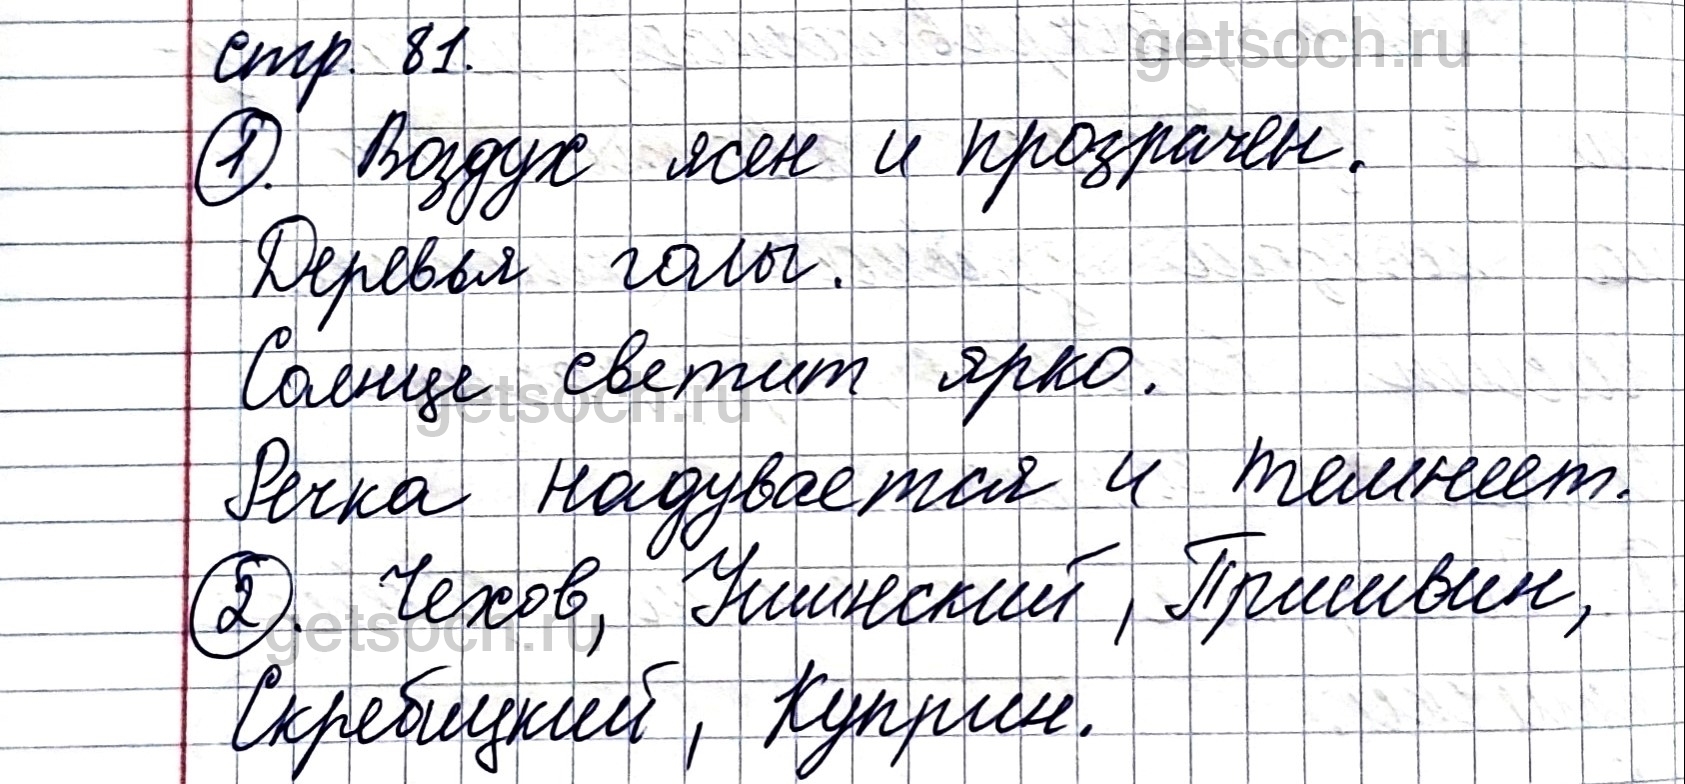 стр. 81.
getsoch.ru
1. Воздух ясен и прозрачен.
Деревья голы.
Солнце светит ярко.
getsoch.ru
Речка надувается и темнеет.
2. Чехов, Ушинский, Пришвин,
getsoch.ru
Скребицкий, Куприн.